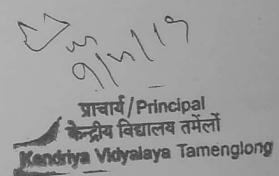 9/11/19
प्राचार्य/Principal
केन्द्रीय विद्यालय तमेंलों
Kendriya Vidyalaya Tamenglong